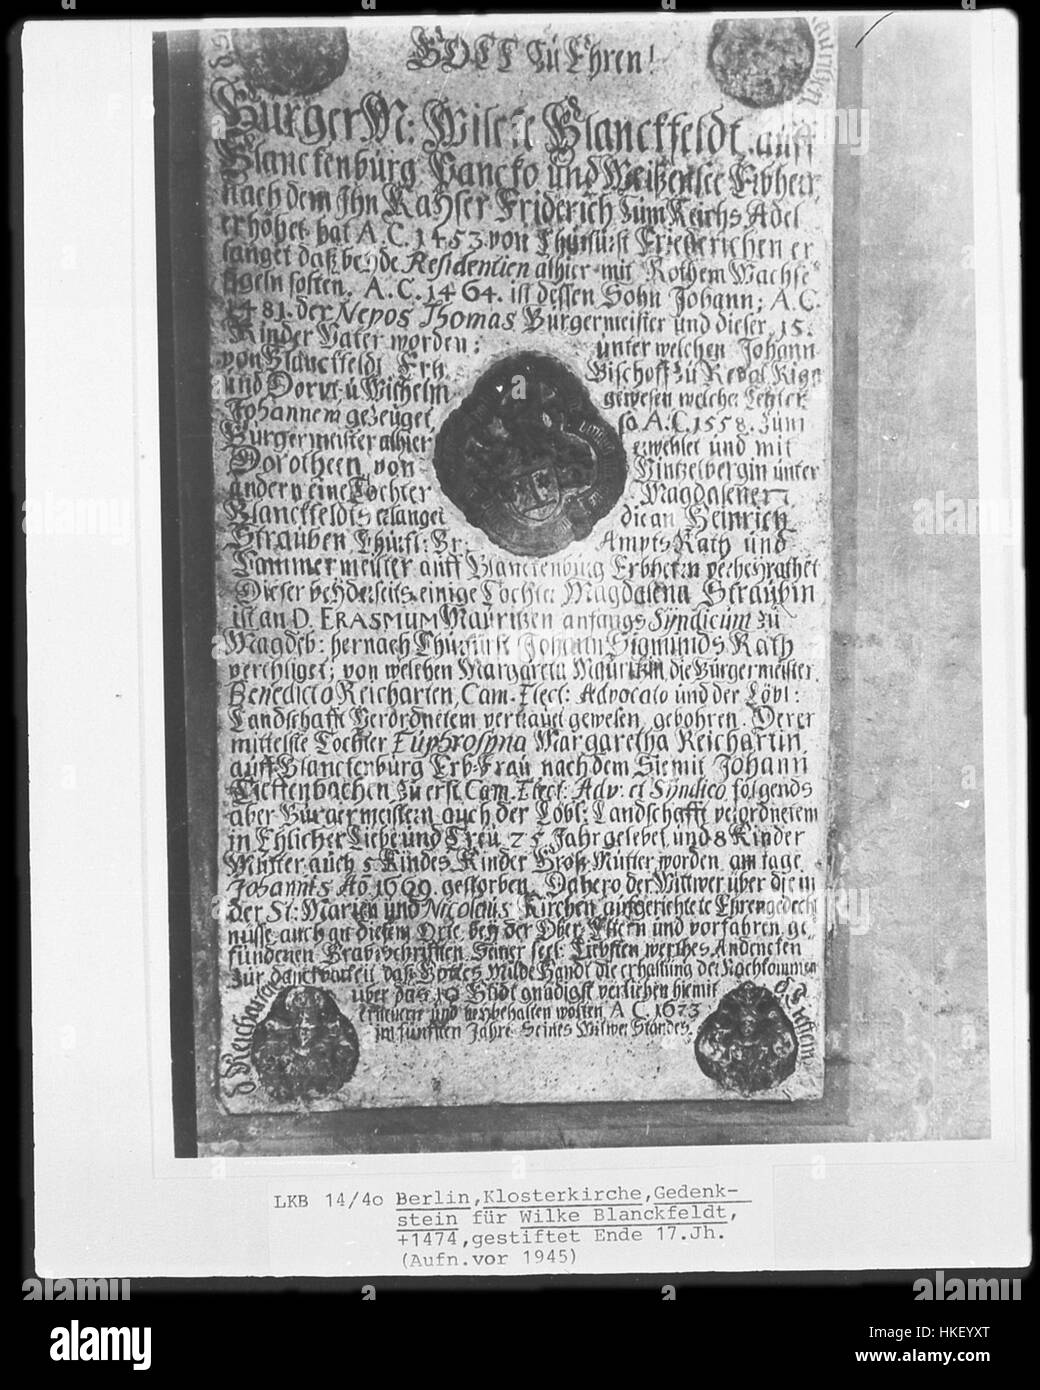 GOTT Zu Ehren!
BürgerM: Wilcke Blanckfeldt, auff
Blanckenburg Pancko und Weißensee Erbherr
nach dem Ihn Kayser Friderich zum Reichs Adel
erhöhet hat A.C. 1453. von Churfürst Friederichen er
langet daß beyde Residentien alhier mit Rothem Wachse
sigeln solten. A.C. 1464. ist dessen Sohn Johann; A.C.
1481. der Nepos Thomas Bürgermeister und dieser 15.
Kinder Vater worden; unter welchen Johann
von Blanckfeldt Ertz Bischoff zu Reval Riga
und Dorpt u Wilhelm gewesen welcher Letzter
Johannem gezeuget so A.C. 1558. zum
Bürgermeister alhier erwehlet und mit
Dorotheen von Hintzelbergin unter
andern eine Tochter Magdalenen
Blanckfeldts erlanget die an Heinrich
Strauben Churfl: Br: Ampts Rath und
Cammermeister auff Blanckenburg Erbherrn verheyrathet
Dieser beyderseits einige Tochter Magdalena Straubin
ist an D. ERASMUM Mauritzen anfangs Syndicum zu
Magdeb: hernach Churfürst Johann Sigmunds Rath
verehliget; von welchen Margareta Mauritzin die Bürgermeister
Benedicto Reicharten, Cam. Elect: Advocato und der Löbl:
Landschafft Verordnetem vertrauet gewesen, gebohren. Derer
mittelste Tochter Euphrosyna Margaretha Reichartin
auff Blanckenburg Erb-Frau nach dem Sie mit Johann
Tieffenbachen, zu erst Cam. Elect: Adv: et Syndico folgends
aber Bürgermeistern auch der Löbl: Landschafft verordnetem
in Ehlicher Liebe und Treu 25 Jahr gelebet, und 8 Kinder
Mutter, auch 5 Kindes Kinder Groß Mutter worden am tage
Johannis Aō 1669. gestorben. Dahero der Wittwer über die in
der St: Marien und Nicolaus Kirchen aufgerichtete Ehrengedecht
nüsse auch an diesem Orte, bey der Ober Eltern und vorfahren ge
fundenen Grabschrifften Seiner seel: Liebsten werthes Andencken
Zur danckbarkeit daß Gottes Milde Handt die erhaltung der Nachkommen
über das 10 Glidt gnädigst verliehen hiemit
erneuern und beybehalten wollen A.C. 1673
im fünfften Jahre Seines Witwer Standes.
d. Reichart
LKB 14/40 Berlin, Klosterkirche, Gedenk-
stein für Wilke Blanckfeldt,
+1474, gestiftet Ende 17.Jh.
(Aufn.vor 1945)
alamy
Image ID: HKEYXT
www.alamy.com